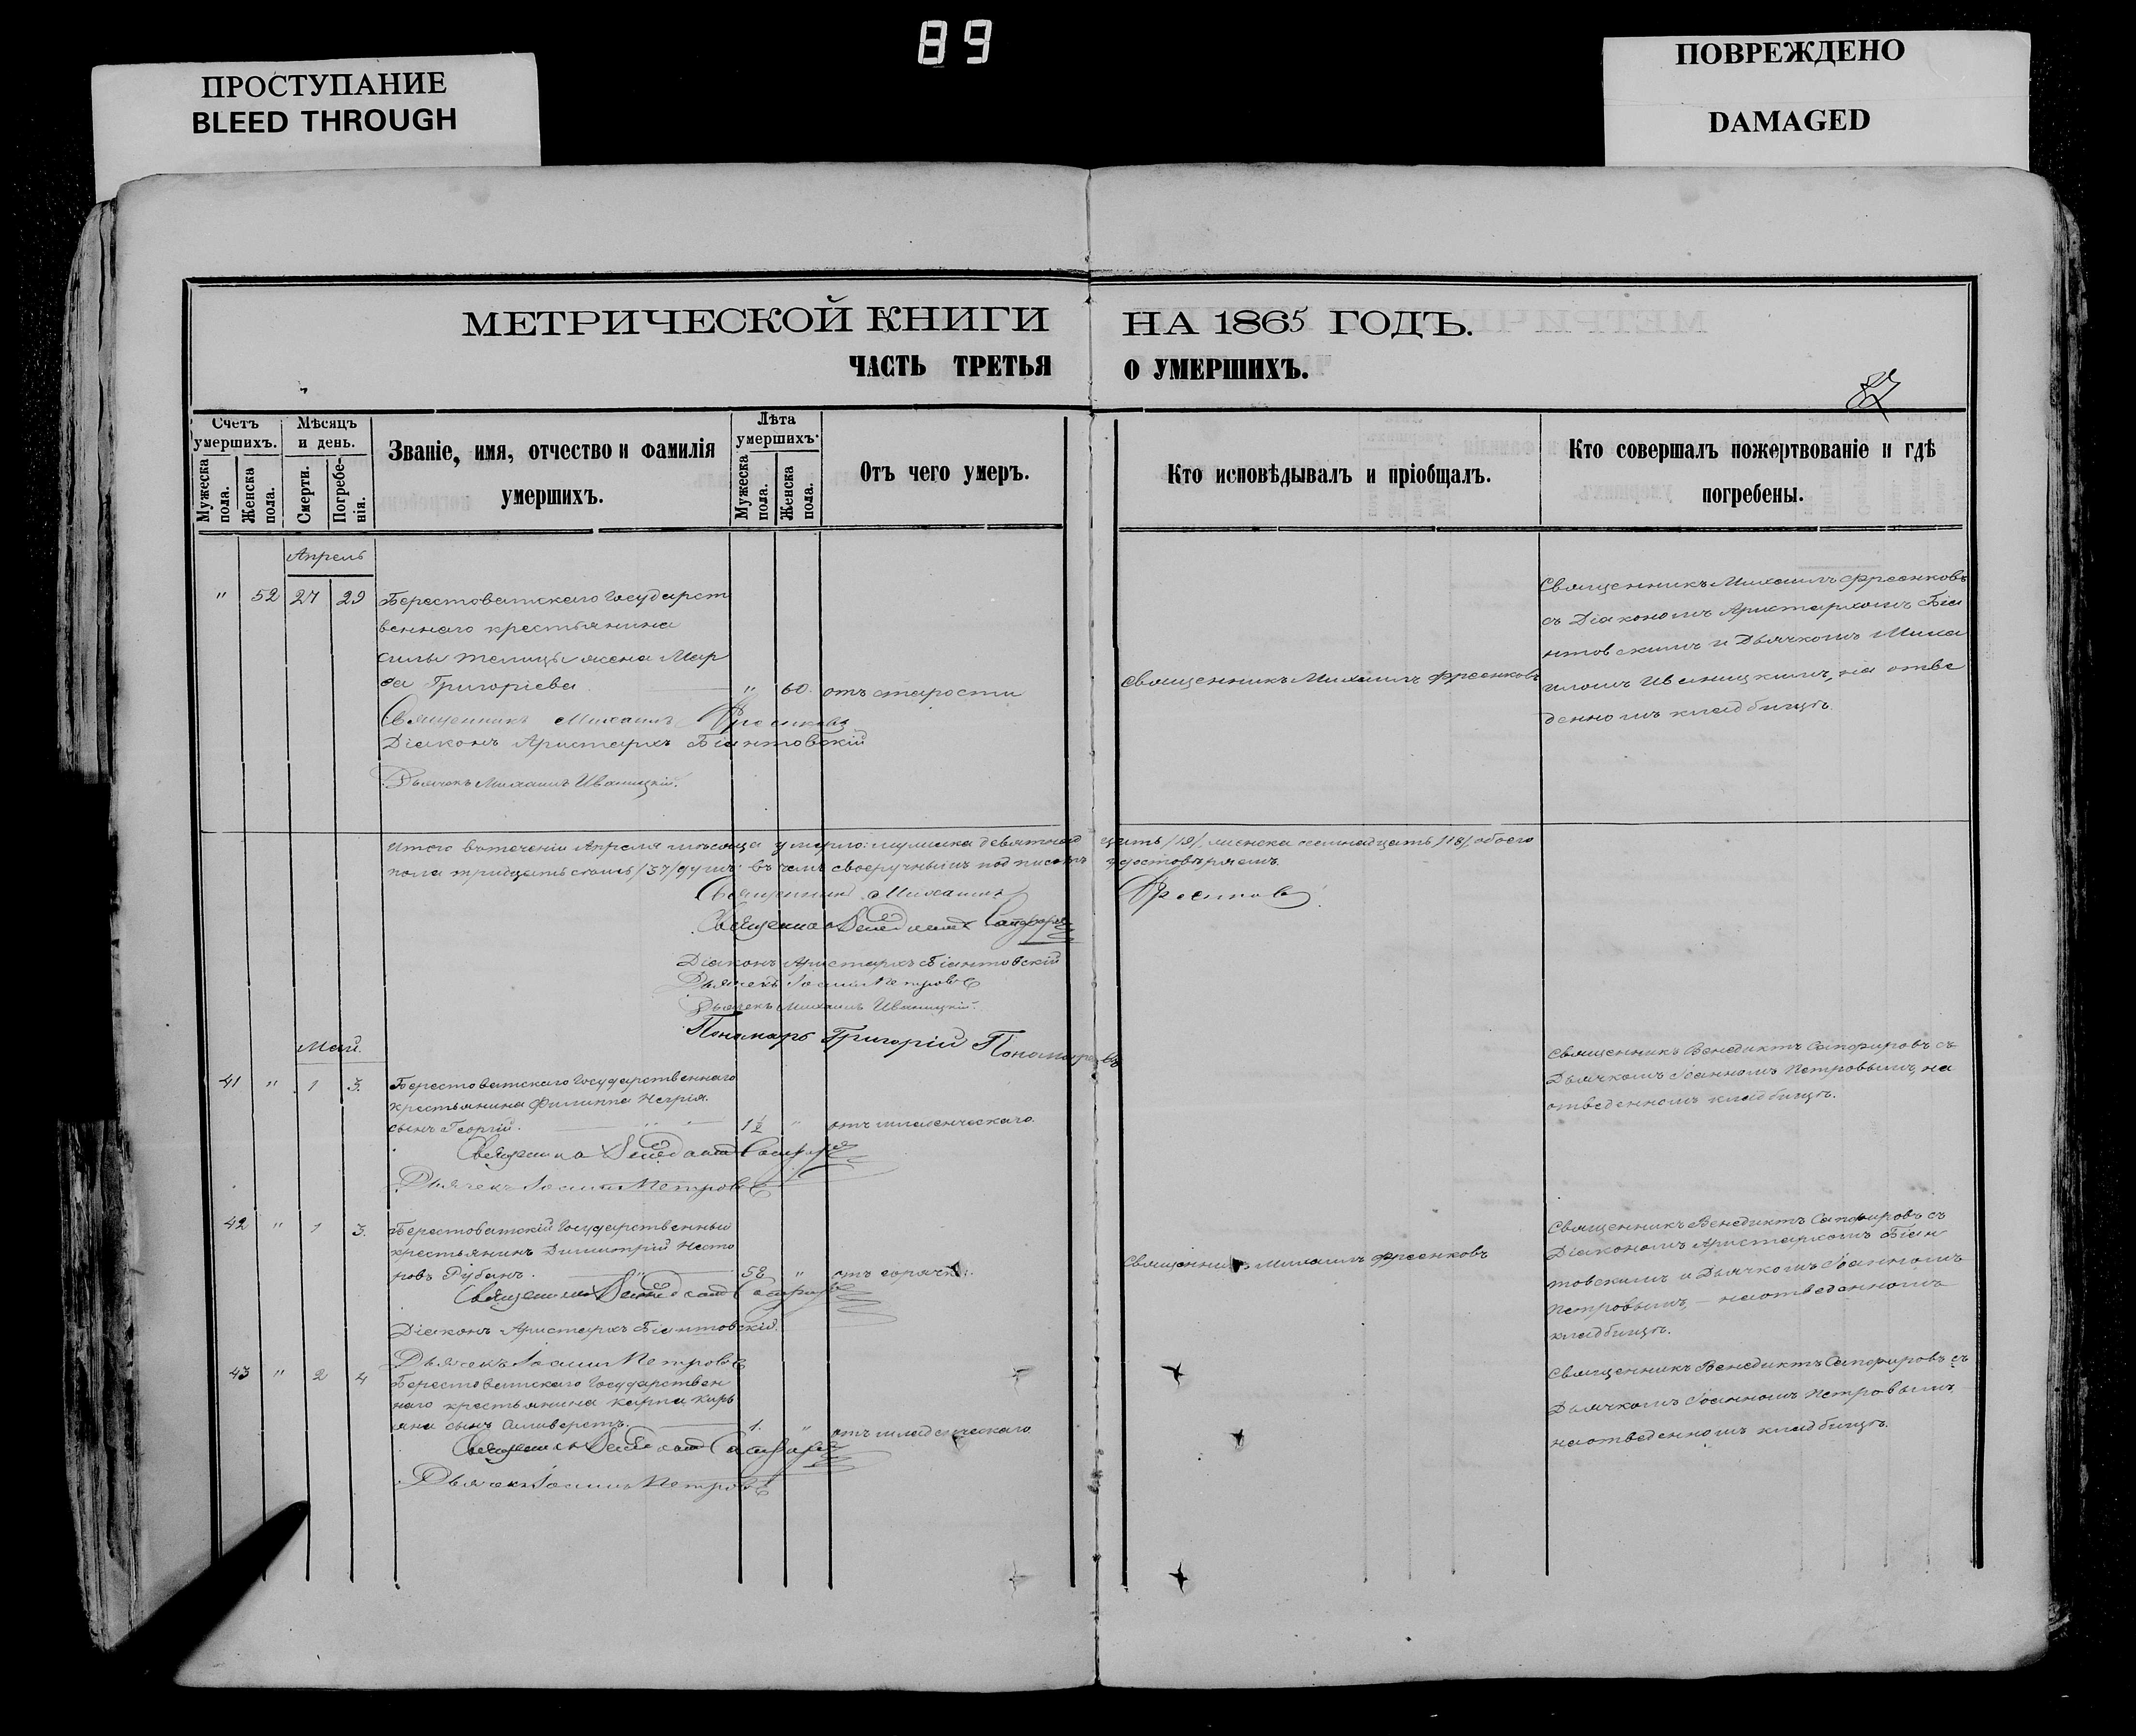 89
ПРОСТУПАНИЕ
BLEED THROUGH
ПОВРЕЖДЕНО
DAMAGED
МЕТРИЧЕСКОЙ КНИГИ НА 1865 ГОДЪ.
ЧАСТЬ ТРЕТЬЯ О УМЕРШИХЪ.
87
Счетъ умершихъ.
Мужеска пола.
Женска пола.
Мѣсяцъ и день.
Смерти.
Погребенія.
Званіе, имя, отчество и фамилія
умершихъ.
Лѣта умершихъ.
Мужеска пола.
Женска пола.
Отъ чего умеръ.
Кто исповѣдывалъ и пріобщалъ.
Кто совершалъ пожертвованіе и гдѣ
погребены.
Апрель
" 52 27 29 Берестоватскаго Государст
веннаго крестьянина
Силы жена Мар
Григоріева " 60. отъ старости
Священникъ Михаилъ
Діаконъ Аристархъ Біантовскій
Дьячекъ Михаилъ Иваницкій.
Священникъ Михаилъ
Священникъ Михаилъ
съ Діакономъ Аристархомъ Біа
нтовскимъ и Дьячкомъ Миха
иломъ Иваницкимъ, на отве
денномъ кладбищѣ.
Итого въ теченіи Апреля мѣсяца умерло: мужеска девятнад цать /19/, женска /18/, обоего
пола тридцать семь /37/ душъ въ чемъ своеручнымъ подписомъ удостовѣряемъ.
Священникъ Михаилъ
Священникъ Венедиктъ Сапфировъ
Діаконъ Аристархъ Біантовскій
Дьячекъ Іоаннъ Петровъ
Дьячекъ Михаилъ Иваницкій.
Пономарь Григорій Пономаревъ
Май.
41 " 1 3. Берестоватскаго Государственнаго
крестьянина Филиппа
сынъ Георгій. 1½ " отъ младенческаго.
Священникъ Венедиктъ Сапфировъ
Дьячекъ Іоаннъ Петровъ
Священникъ Венедиктъ Сапфировъ съ
Дьячкомъ Іоанномъ Петровымъ, на
отведенномъ кладбищѣ.
42 " 1 3. Берестоватскій Государственный
крестьянинъ Димитрій Несто
ровъ Рубанъ. 58 " отъ горячки.
Священникъ Венедиктъ Сапфировъ
Діаконъ Аристархъ Біантовскій.
Дьячекъ Іоаннъ Петровъ
Священникъ Михаилъ
Священникъ Венедиктъ Сапфировъ съ
Діакономъ Аристархомъ Біан
товскимъ и Дьячкомъ Іоанномъ
Петровымъ, – на отведенномъ
кладбищѣ.
43 " 2 4 Берестоватскаго Государствен
наго крестьянина Карпа Кирь
яна сынъ Силиверстъ. 1. " отъ младенческаго
Священникъ Венедиктъ Сапфировъ
Дьячекъ Іоаннъ Петровъ
Священникъ Венедиктъ Сапфировъ съ
Дьячкомъ Іоанномъ Петровымъ
на отведенномъ кладбищѣ.